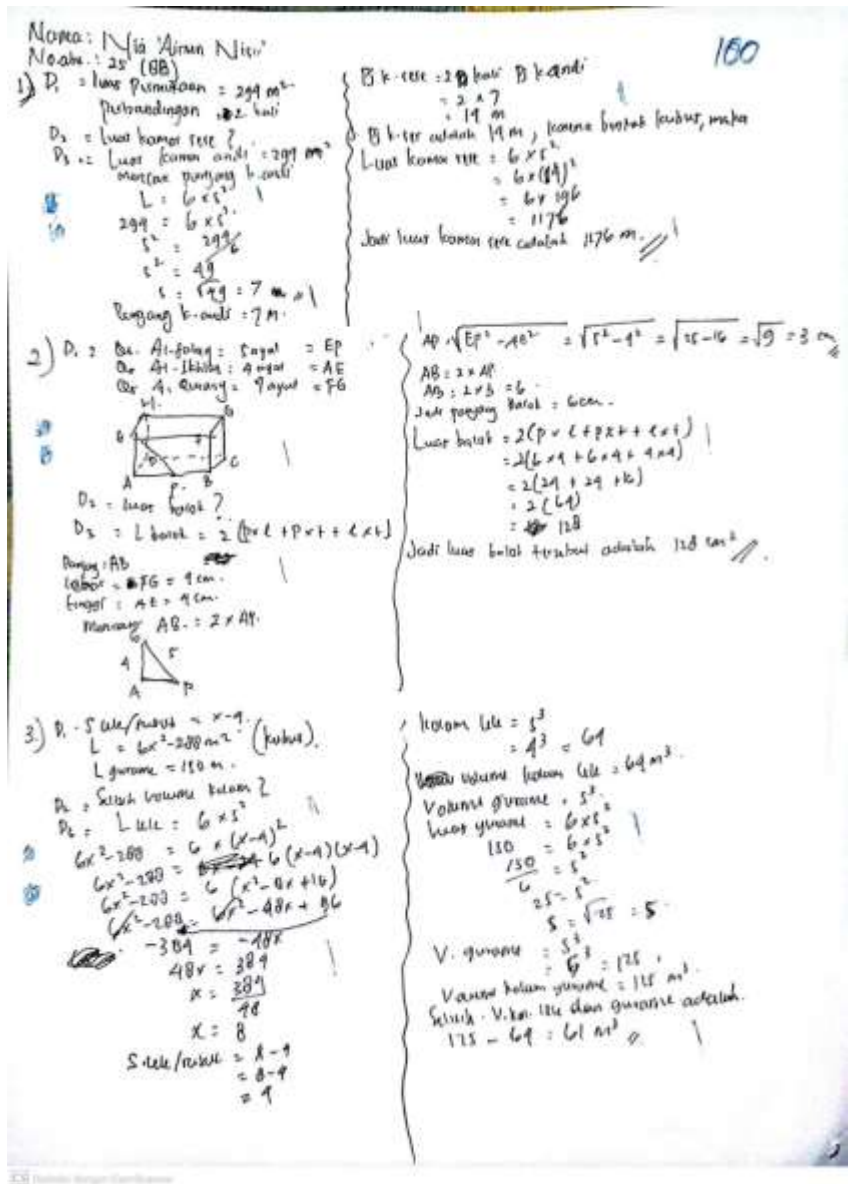 Nama: Nia 'Ainun Nisa'
No abs.: 25 (8B)
100
1) D1 = luas Permukaan = 294 m²
Perbandingan = 2 kali
D2 = Luas kamar rere ?
D3 = Luas kamar andi = 294 m²
mencari panjang k. andi
L = 6 x s²
294 = 6 x s²
s² = 294/6
s² = 49
s = √49 = 7 m
Panjang k. andi = 7 m.
Pj k. rere = 2 kali Pj k andi
= 2 x 7
= 14 m
Pj k. rer adalah 14 m, karena bentuk kubus, maka
Luas kamar rere = 6 x s²
= 6 x (14)²
= 6 x 196
= 1176
Jadi luas kamar rere adalah 1176 m.
2) D1 = Qs. Al-falaq = 5 ayat = EP
Qs. Al-Ikhlas = 4 ayat = AE
Qs. A. Quraisy = 4 ayat = FG
H G
E F
D C
A P B
D2 = luas balok ?
D3 = L balok = 2 (p x l + p x t + l x t)
Panjang = AB
Lebar = FG = 4 cm.
tinggi = AE = 4 cm.
Mencari AB = 2 x AP.
E
4 5
A P
AP = √EP² - AE² = √5² - 4² = √25 - 16 = √9 = 3 cm
AB = 2 x AP
AB = 2 x 3 = 6
Jadi panjang Balok = 6 cm.
Luas balok = 2(p x l + p x t + l x t)
= 2(6 x 4 + 6 x 4 + 4 x 4)
= 2(24 + 24 + 16)
= 2(64)
= 128
Jadi luas balok tersebut adalah 128 cm²
3.) D1 - S lele/rusuk = x - 4.
L = 6x² - 288 m² (kubus).
L gurame = 150 m.
D2 = Selisih volume kolam ?
D3 = L lele = 6 x s²
6x² - 288 = 6 x (x - 4)²
6x² - 288 = 6 (x - 4)(x - 4)
6x² - 288 = 6 (x² - 8x + 16)
6x² - 288 = 6x² - 48x + 96
-384 = -48x
48x = 384
x = 384/48
x = 8
S lele/rusuk = x - 4
= 8 - 4
= 4
kolam lele = s³
= 4³ = 64
volume kolam lele = 64 m³.
Volume gurame = s³.
Luas gurame = 6 x s²
150 = 6 x s²
150/6 = s²
25 = s²
s = √25 = 5
V. gurame = s³
= 5³ = 125
Volume kolam gurame = 125 m³.
Selisih V. kol. lele dan gurame adalah.
125 - 64 = 61 m³